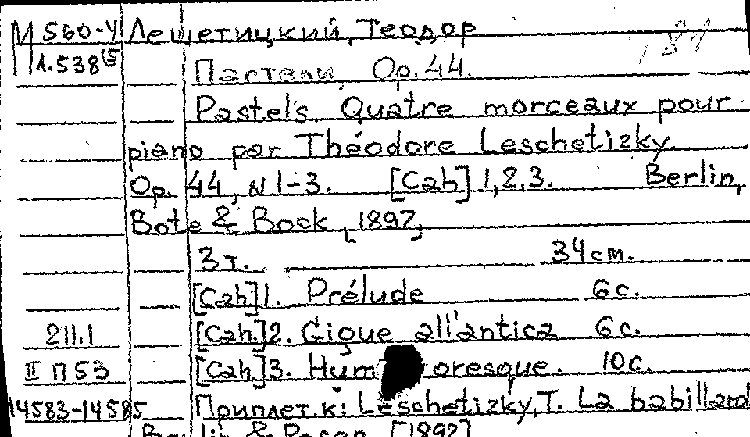 М 560-У Лешетицкий, Теодор
Л.538(5 187
Пастели, Op. 44.
Pastels. Quatre morceaux pour
piano par Théodore Leschetizky
Op. 44, N 1-3. [Cah] 1,2,3. Berlin,
Bote & Bock, [1897]
3 т. 34 cm.
[Cah] 1. Prélude 6 c.
211.1 [Cah.] 2. Gigue all'antica 6 c.
II П 53 [Cah] 3. Humoresque. 10 c.
14583-14585 Приплет. к: Leschetizky, T. La babillard
& [1892]